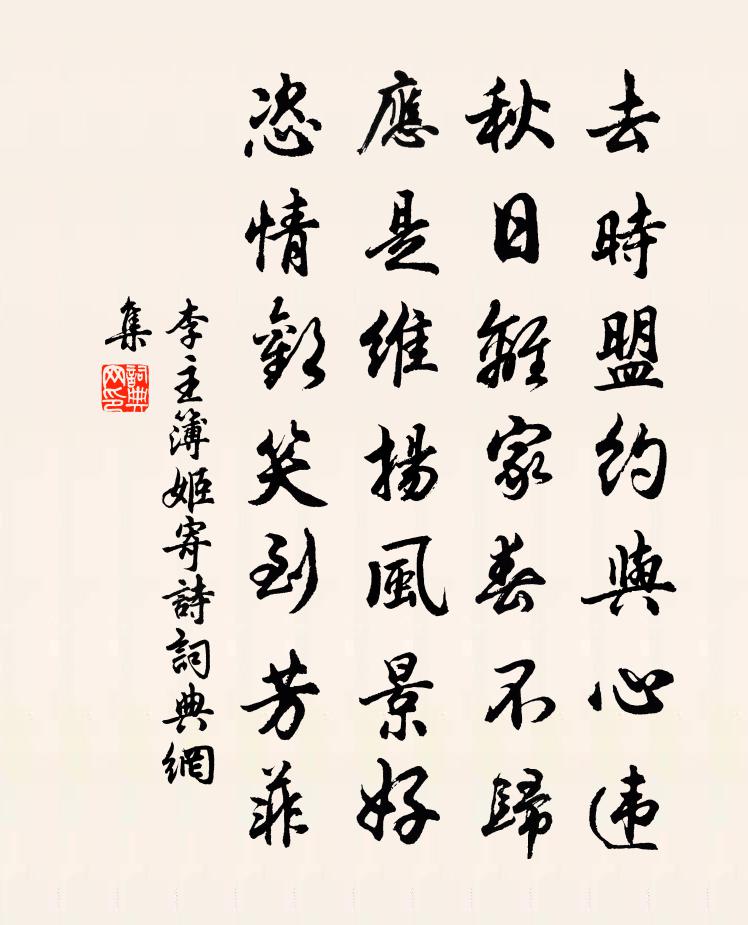 去時盟約與心违
秋日離家春不歸
應是維揚風景好
恣情歡笑到芳菲
李主簿姬寄詩詞典網
集
詞典
网印